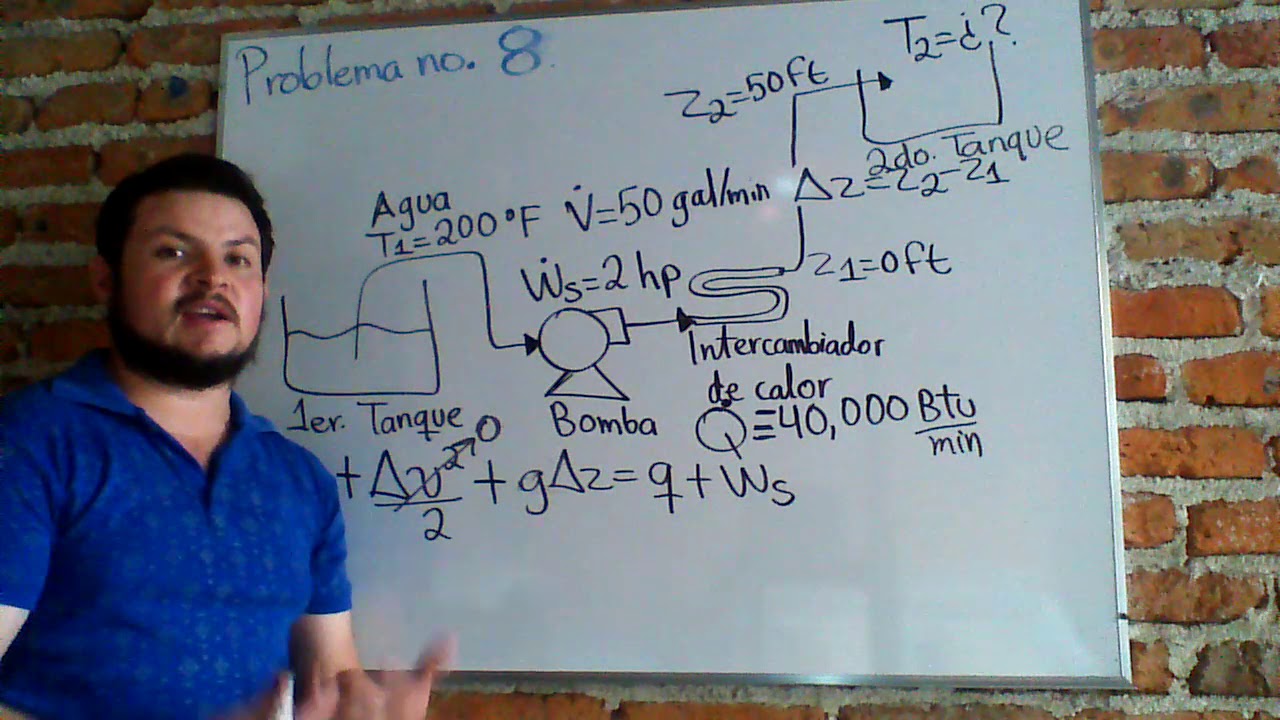 Problema no. 8.
T₂=¿?
Z₂=50ft
2do. Tanque
Agua
T₁=200°F
V̇=50 gal/min
Δz=Z₂-Z₁
Ẇs=2 hp
Z₁=0ft
Intercambiador
de calor
1er. Tanque
Bomba
Q̇=40,000 Btu/min
+ Δv²/2 → 0 + gΔz = q + Ws